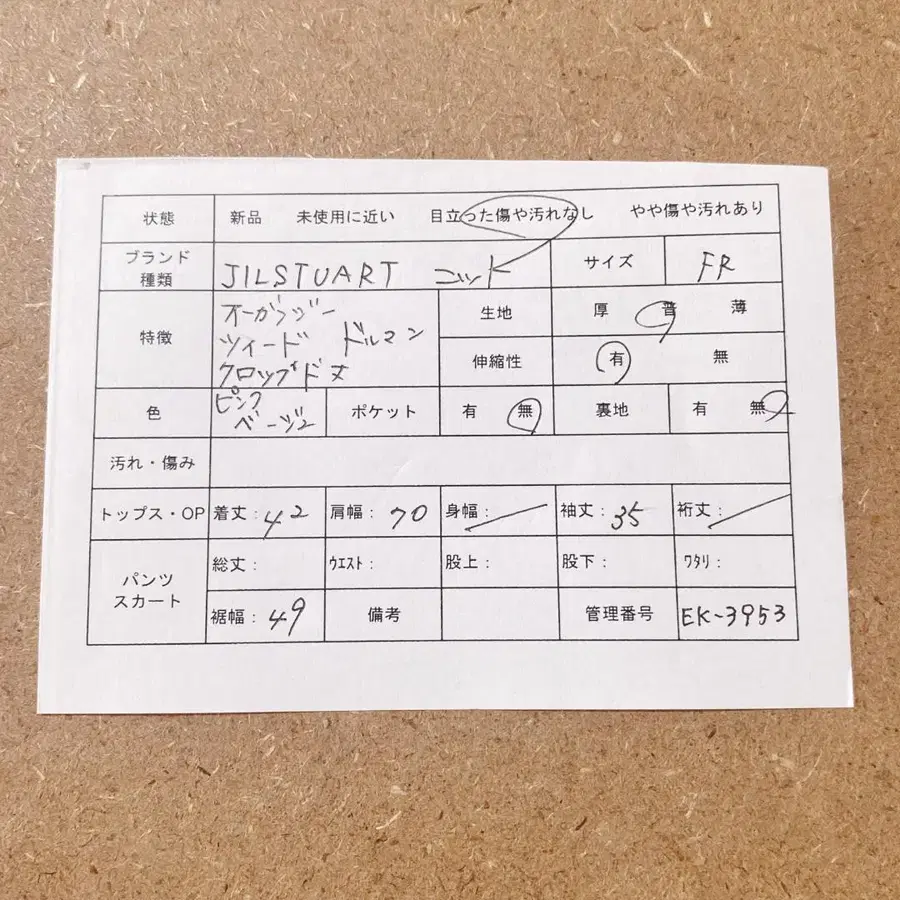 状態 新品 未使用に近い 目立った傷や汚れなし やや傷や汚れあり
ブランド 種類 JILSTUART ニット サイズ FR
特徴 オーガンジー
ツィード ドルマン
クロップド丈
生地 厚 普 薄
伸縮性 有 無
色 ピンク
ベージュ
ポケット 有 無 裏地 有 無
汚れ・傷み
トップス・OP 着丈: 42 肩幅: 70 身幅: 袖丈: 35 裄丈:
パンツ
スカート
総丈: ウエスト: 股上: 股下: ワタリ:
裾幅: 49 備考 管理番号 EK-3953